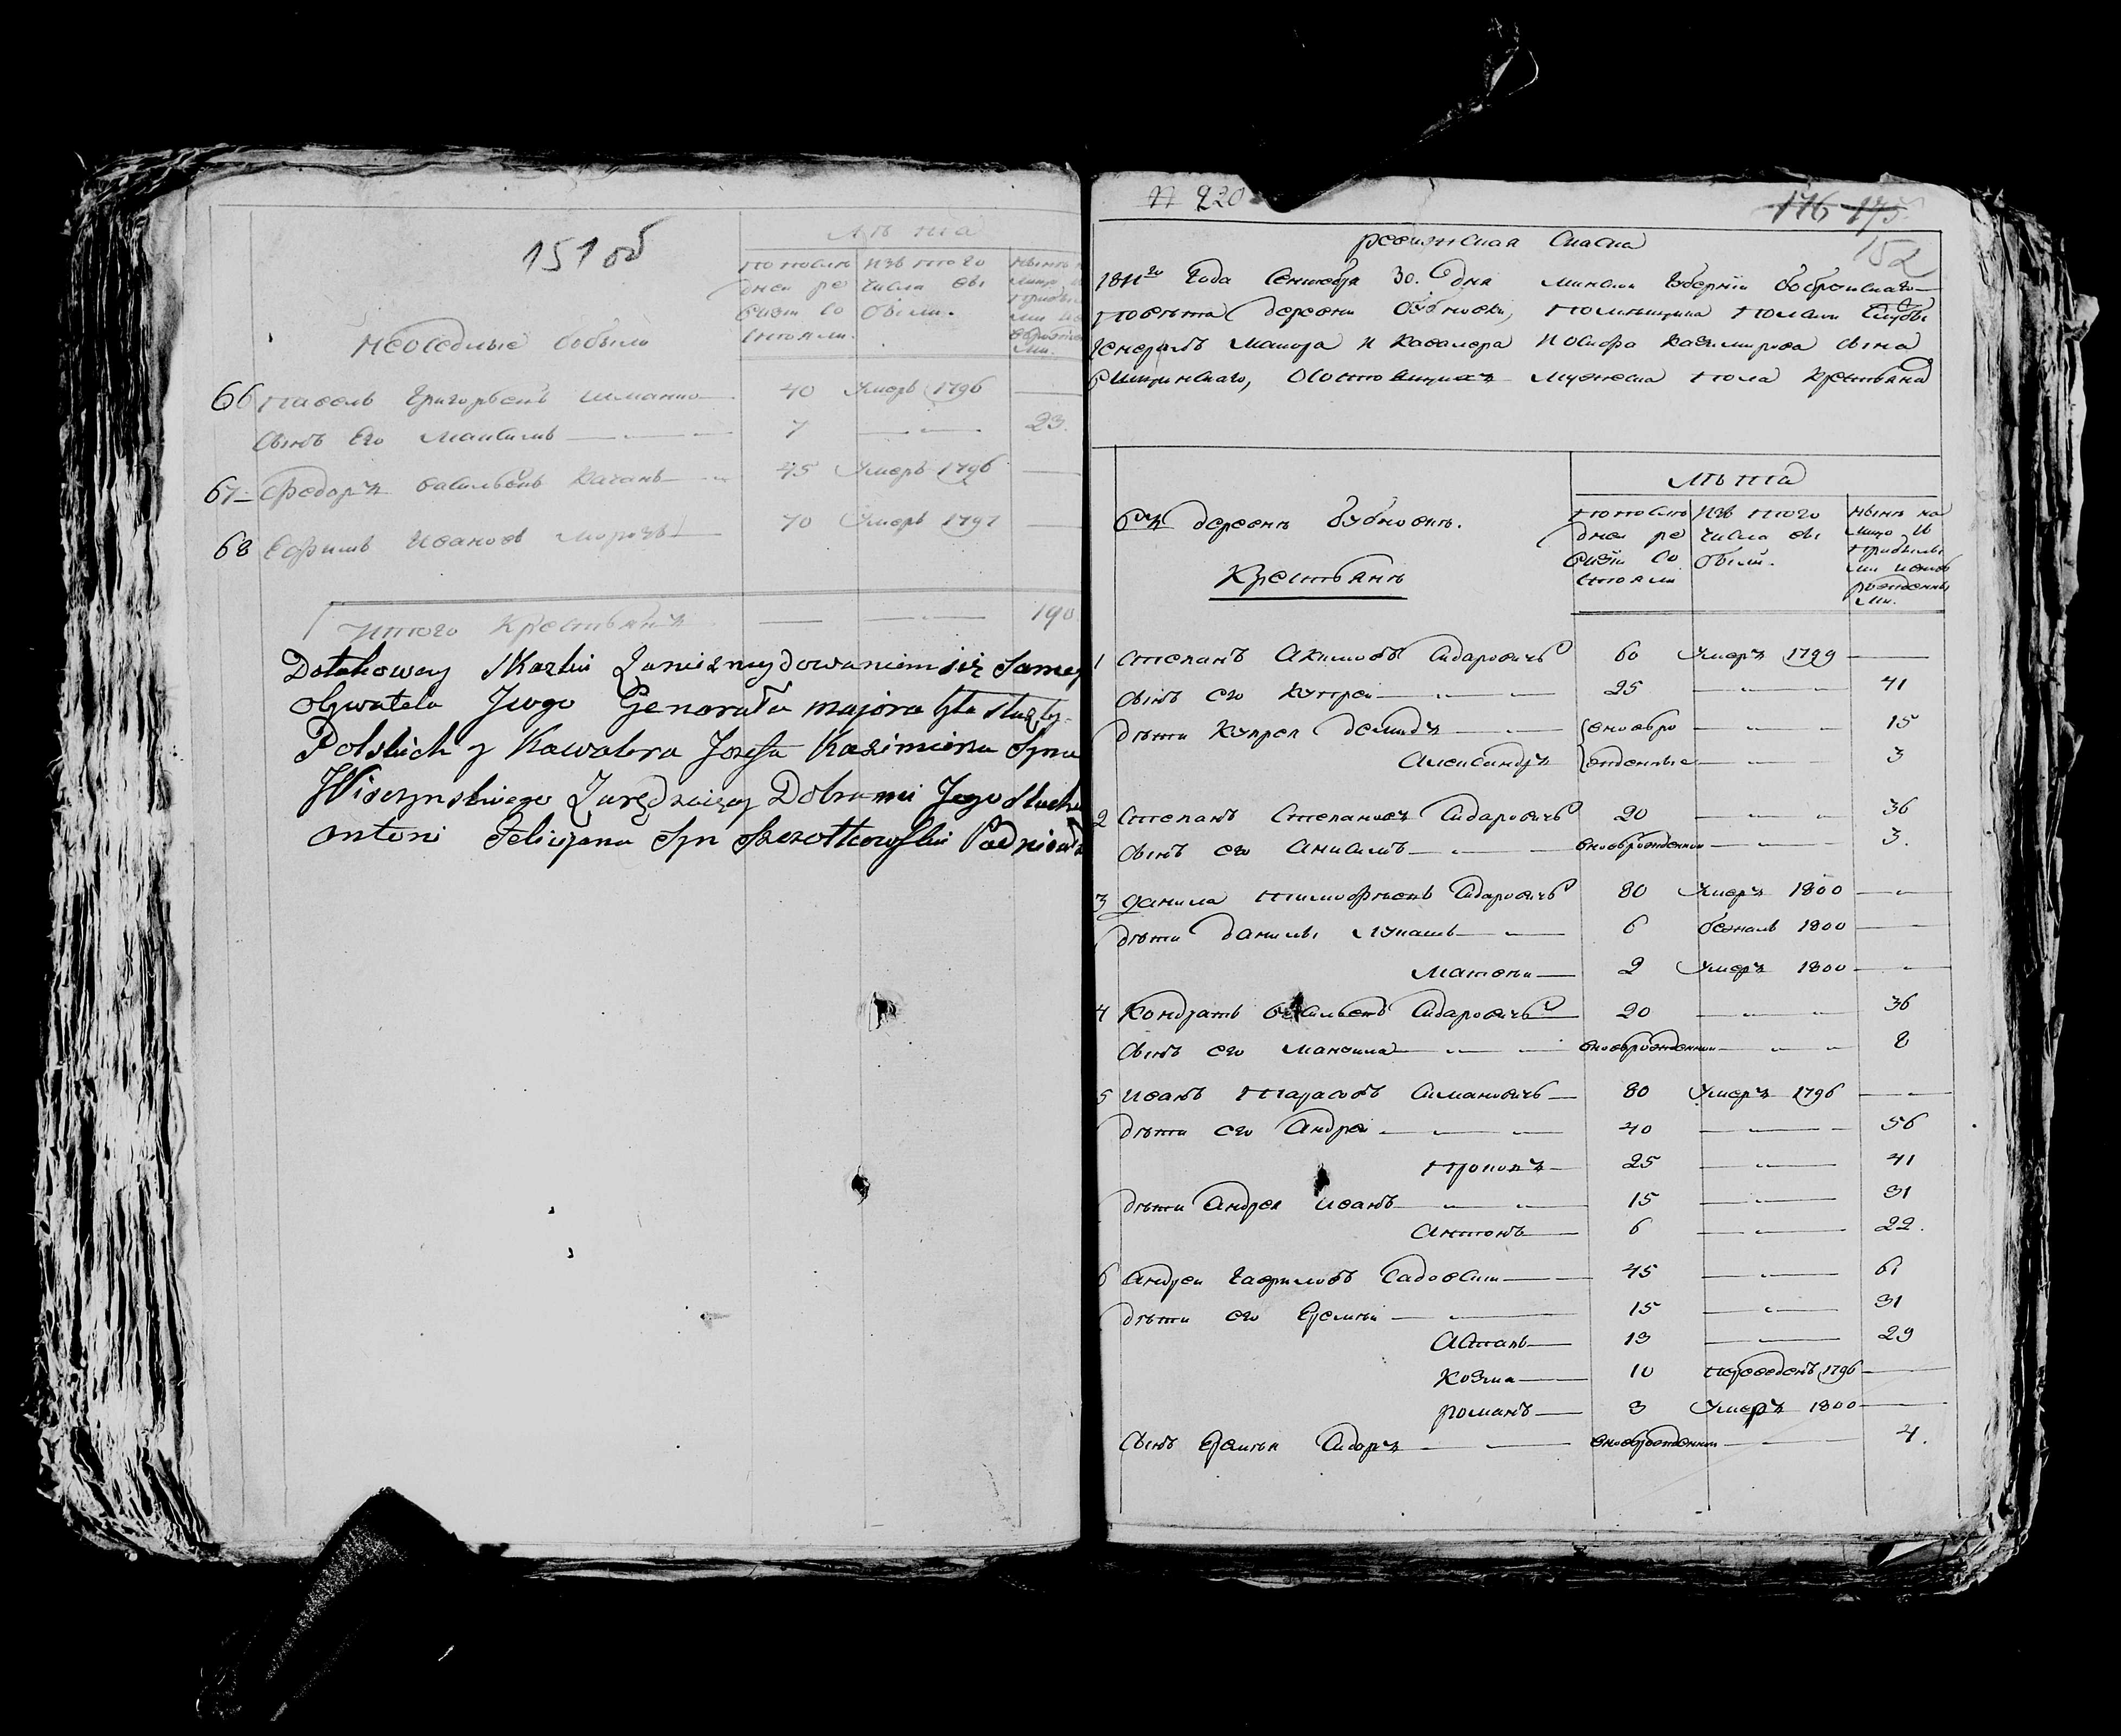 151 об
Лѣта
по послѣ
дней ре
визіи со
стояли.
изъ того
числа вы
были.
нынѣ
Неоседлые бобыли
66 Павель Григорьевъ Шманю 40 Умеръ 1796 —
Сынъ Его Максимъ 7 — 23.
67 Федоръ Васильевъ Качанъ 45 Умеръ 1796 —
68 Ефимъ Ивановъ Морозъ 70 Умеръ 1797 —
Итого Крестьянъ — — 190
Dotakowey Skazki Zanieznaydowaniem się Samego
Obywatela Jwgo Generała majora
Polskich y Kawalera Jozefa Kazimierza Syna
Zarządzaiący Dobrami Jego
Antoni Felicyana Syn
N 220
176 175
152
ревижская Сказка
1811го Года Сентября 30. Дня Минской Губерніи Бобруйскаго
повѣта деревни Бубновки, помѣщика польской Службы
Генералъ Маиора и Кавалера Иосифа Казимирова сына
Состоящихъ мужеска пола крестьянъ
Въ деревнѣ Бубновкѣ.
Крестьянъ
Лѣта
по послѣ
дней ре
визіи со
стояли
изъ того
числа вы
были.
нынѣ на
лицо съ
прибылы
ми и новъ
рожденны
ми.
1 Степанъ Акимовъ Сидаровичъ 60 Умеръ 1799 —
Сынъ его Купрей 25 — 41
дѣти Купрея Демидъ { вновьро — 15
Александръ { жденные — 3
2 Степанъ Степановъ Сидаровичъ 20 — 36
Сынъ его Анисимъ вновьрожденный — 3.
3 Данила Тимофѣевъ Сидаровичъ 80 Умеръ 1800 —
дѣти Данилы Лукашъ 6 бежалъ 1800 —
Матвей 2 Умеръ 1800 —
4 Кондратъ Васильевъ Сидаровичъ 20 — 36
Сынъ его вновьрожденный — 8
5 Иванъ Тарасовъ Симановичъ 80 Умеръ 1796 —
дѣти его Андрей 40 — 56
Прокопъ 25 — 41
дѣти Андрея Иванъ 15 — 31
Антонъ 6 — 22.
6 Андрей Гавриловъ Садовски 45 — 61
дѣти его Еремѣй 15 — 31
Астапъ 13 — 29
Козма 10 переведенъ 1796 —
Романъ 3 Умеръ 1800 —
Сынъ Еремѣя Сидоръ вновьрожденный — 4.